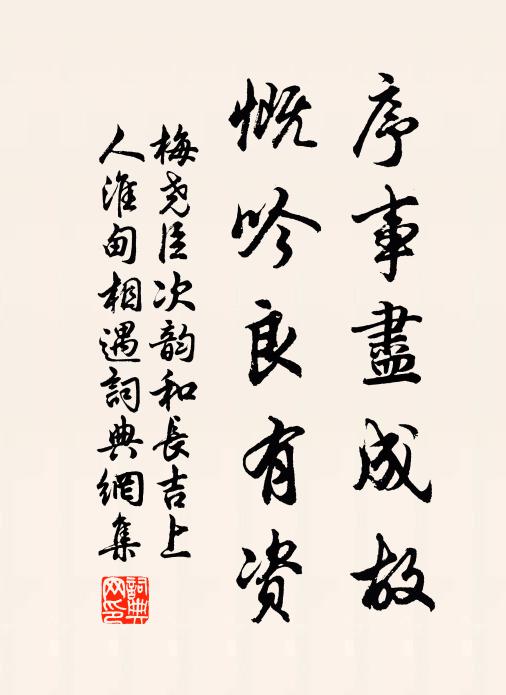 序事盡成故
慨吟良有资
梅尧臣次韵和長吉上
人淮甸相遇詞典網集
詞典
网印